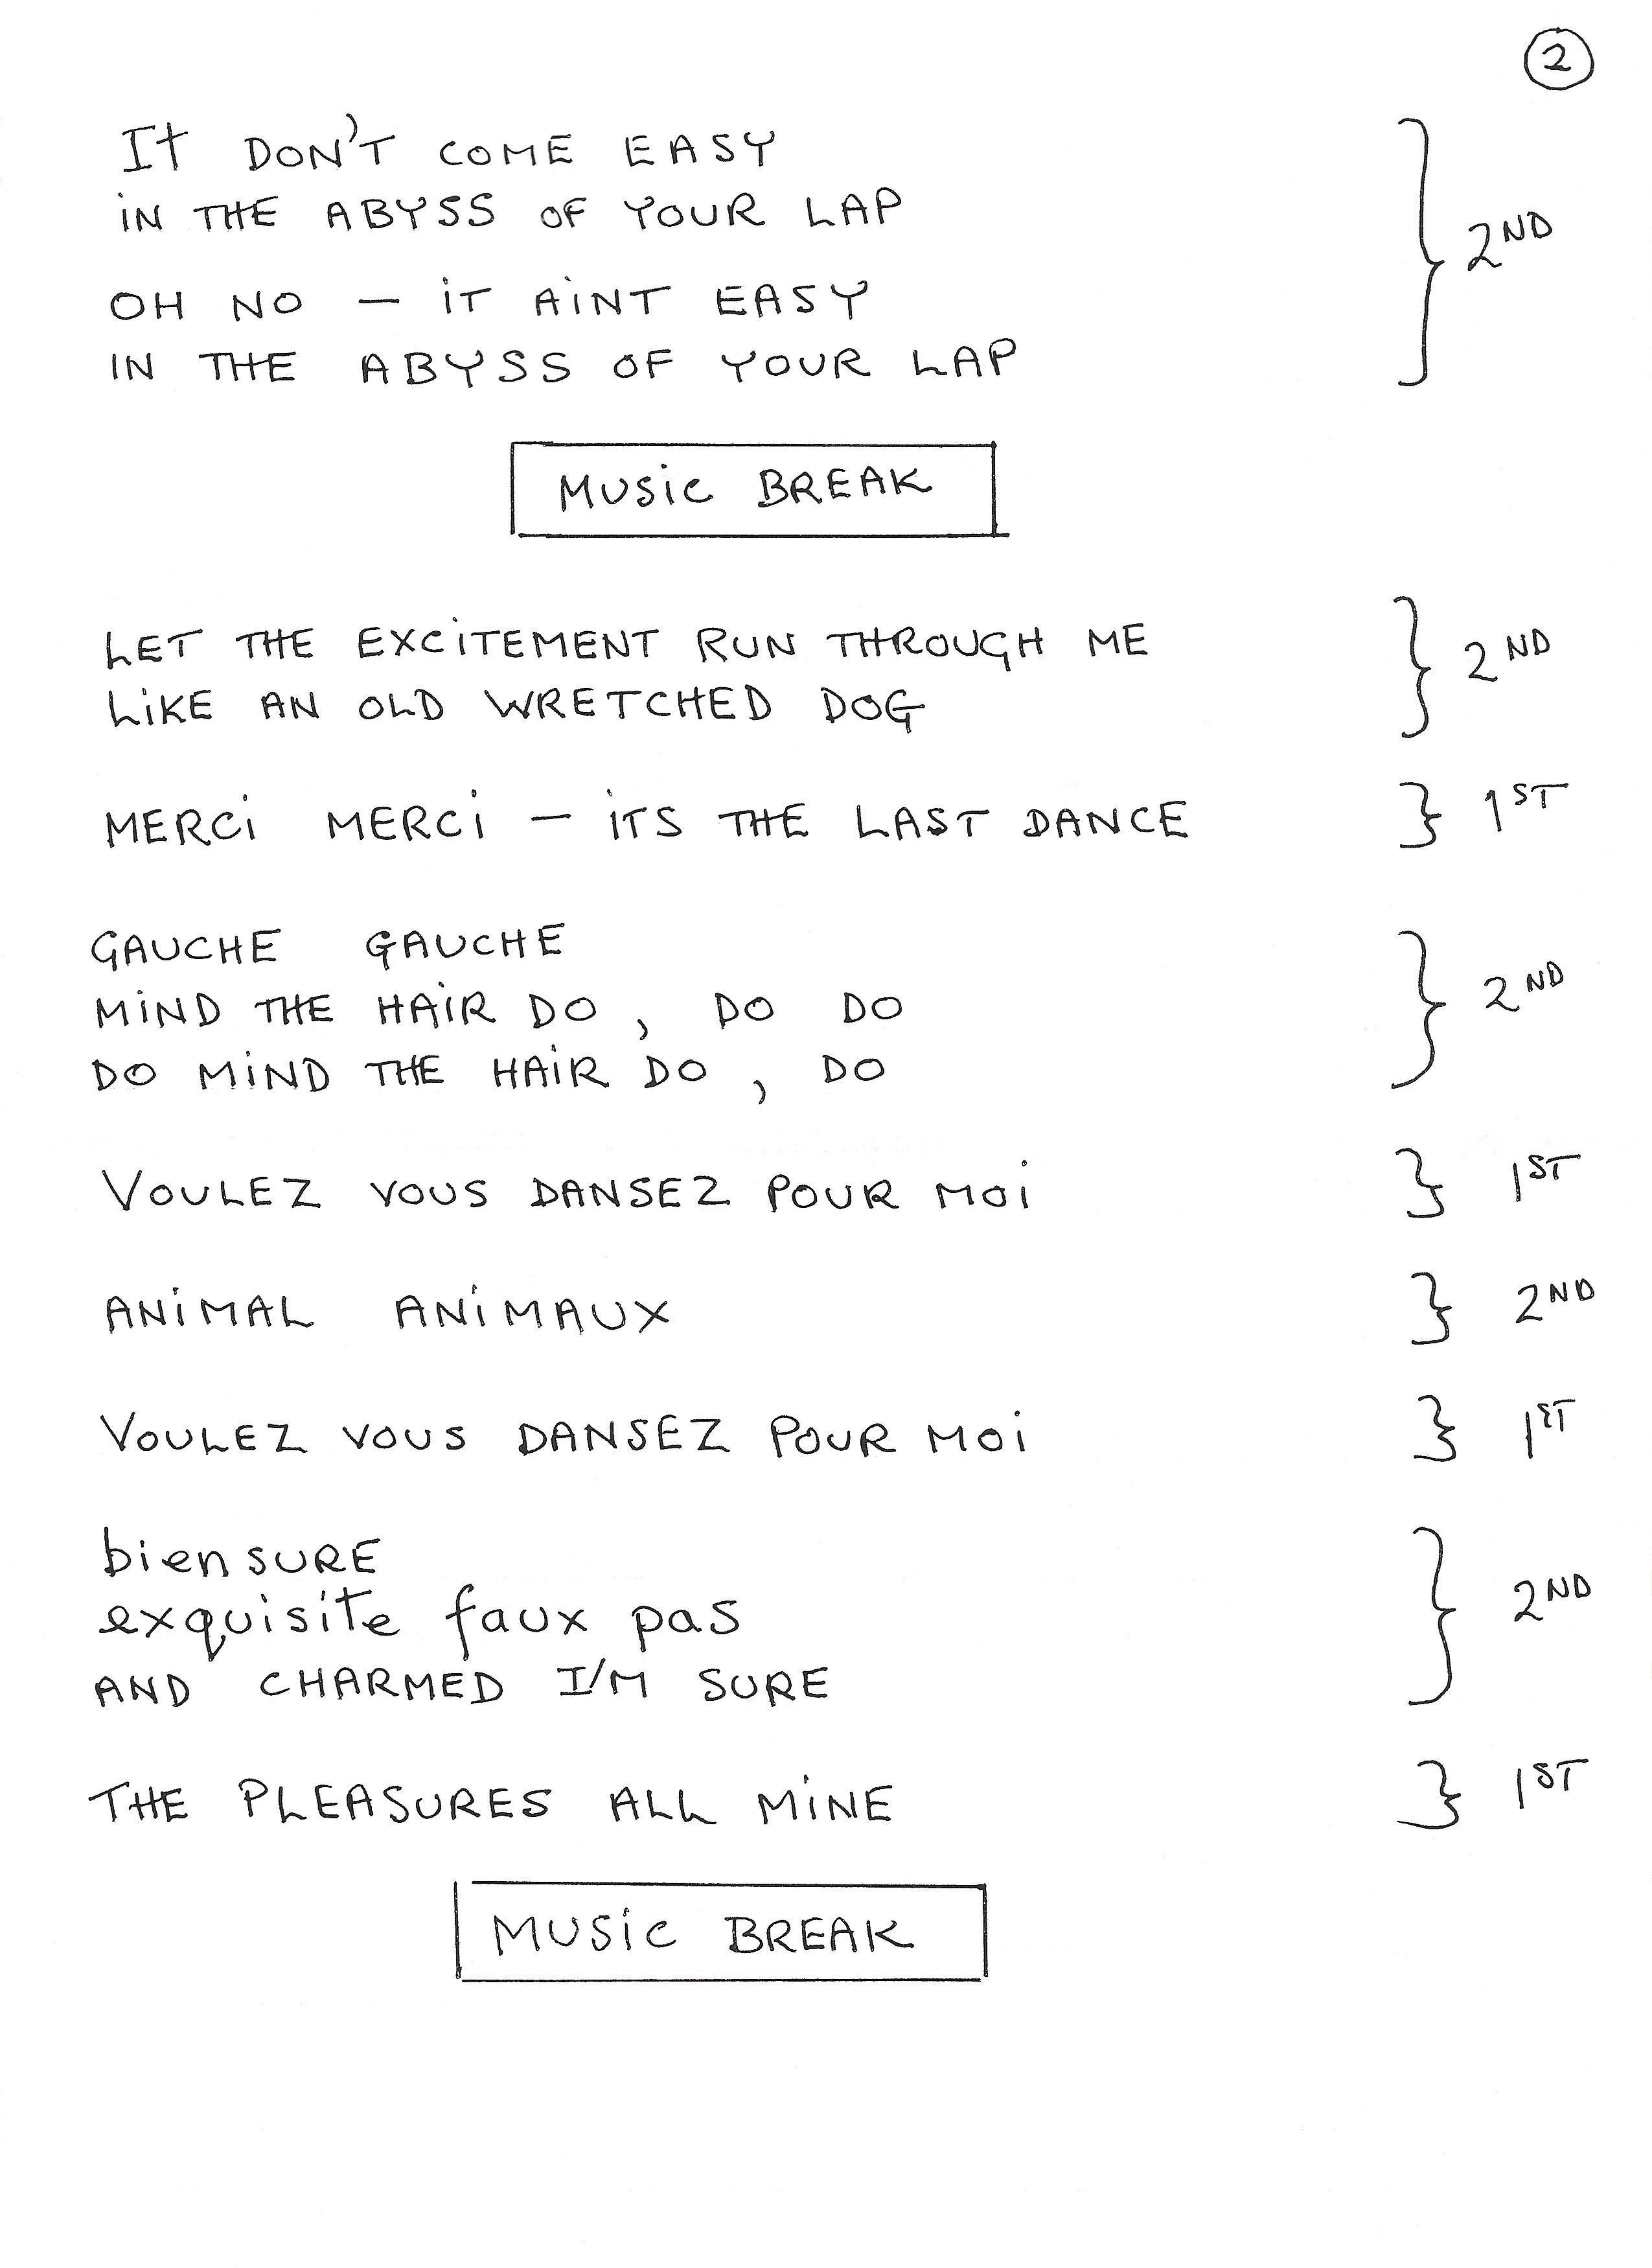 2
It DON'T COME EASY
iN THE ABYSS OF YOUR LAP
OH NO — iT AiNT EASY
IN THE ABYSS OF YOUR LAP
2ND
MUSiC BREAK
LET THE EXCiTEMENT RUN THROUGH ME
LiKE AN OLD WRETCHED DOG
2ND
MERCi MERCi — iTS THE LAST DANCE
1ST
GAUCHE GAUCHE
MiND THE HAiR DO , DO DO
DO MiND THE HAiR DO , DO
2ND
VOULEZ VOUS DANSEZ POUR MOi
1ST
ANiMAL ANiMAUX
2ND
VOULEZ VOUS DANSEZ POUR MOi
1ST
bien SURE
exquisite faux pas
AND CHARMED I'M SURE
2ND
THE PLEASURES ALL MiNE
1ST
MUSiC BREAK